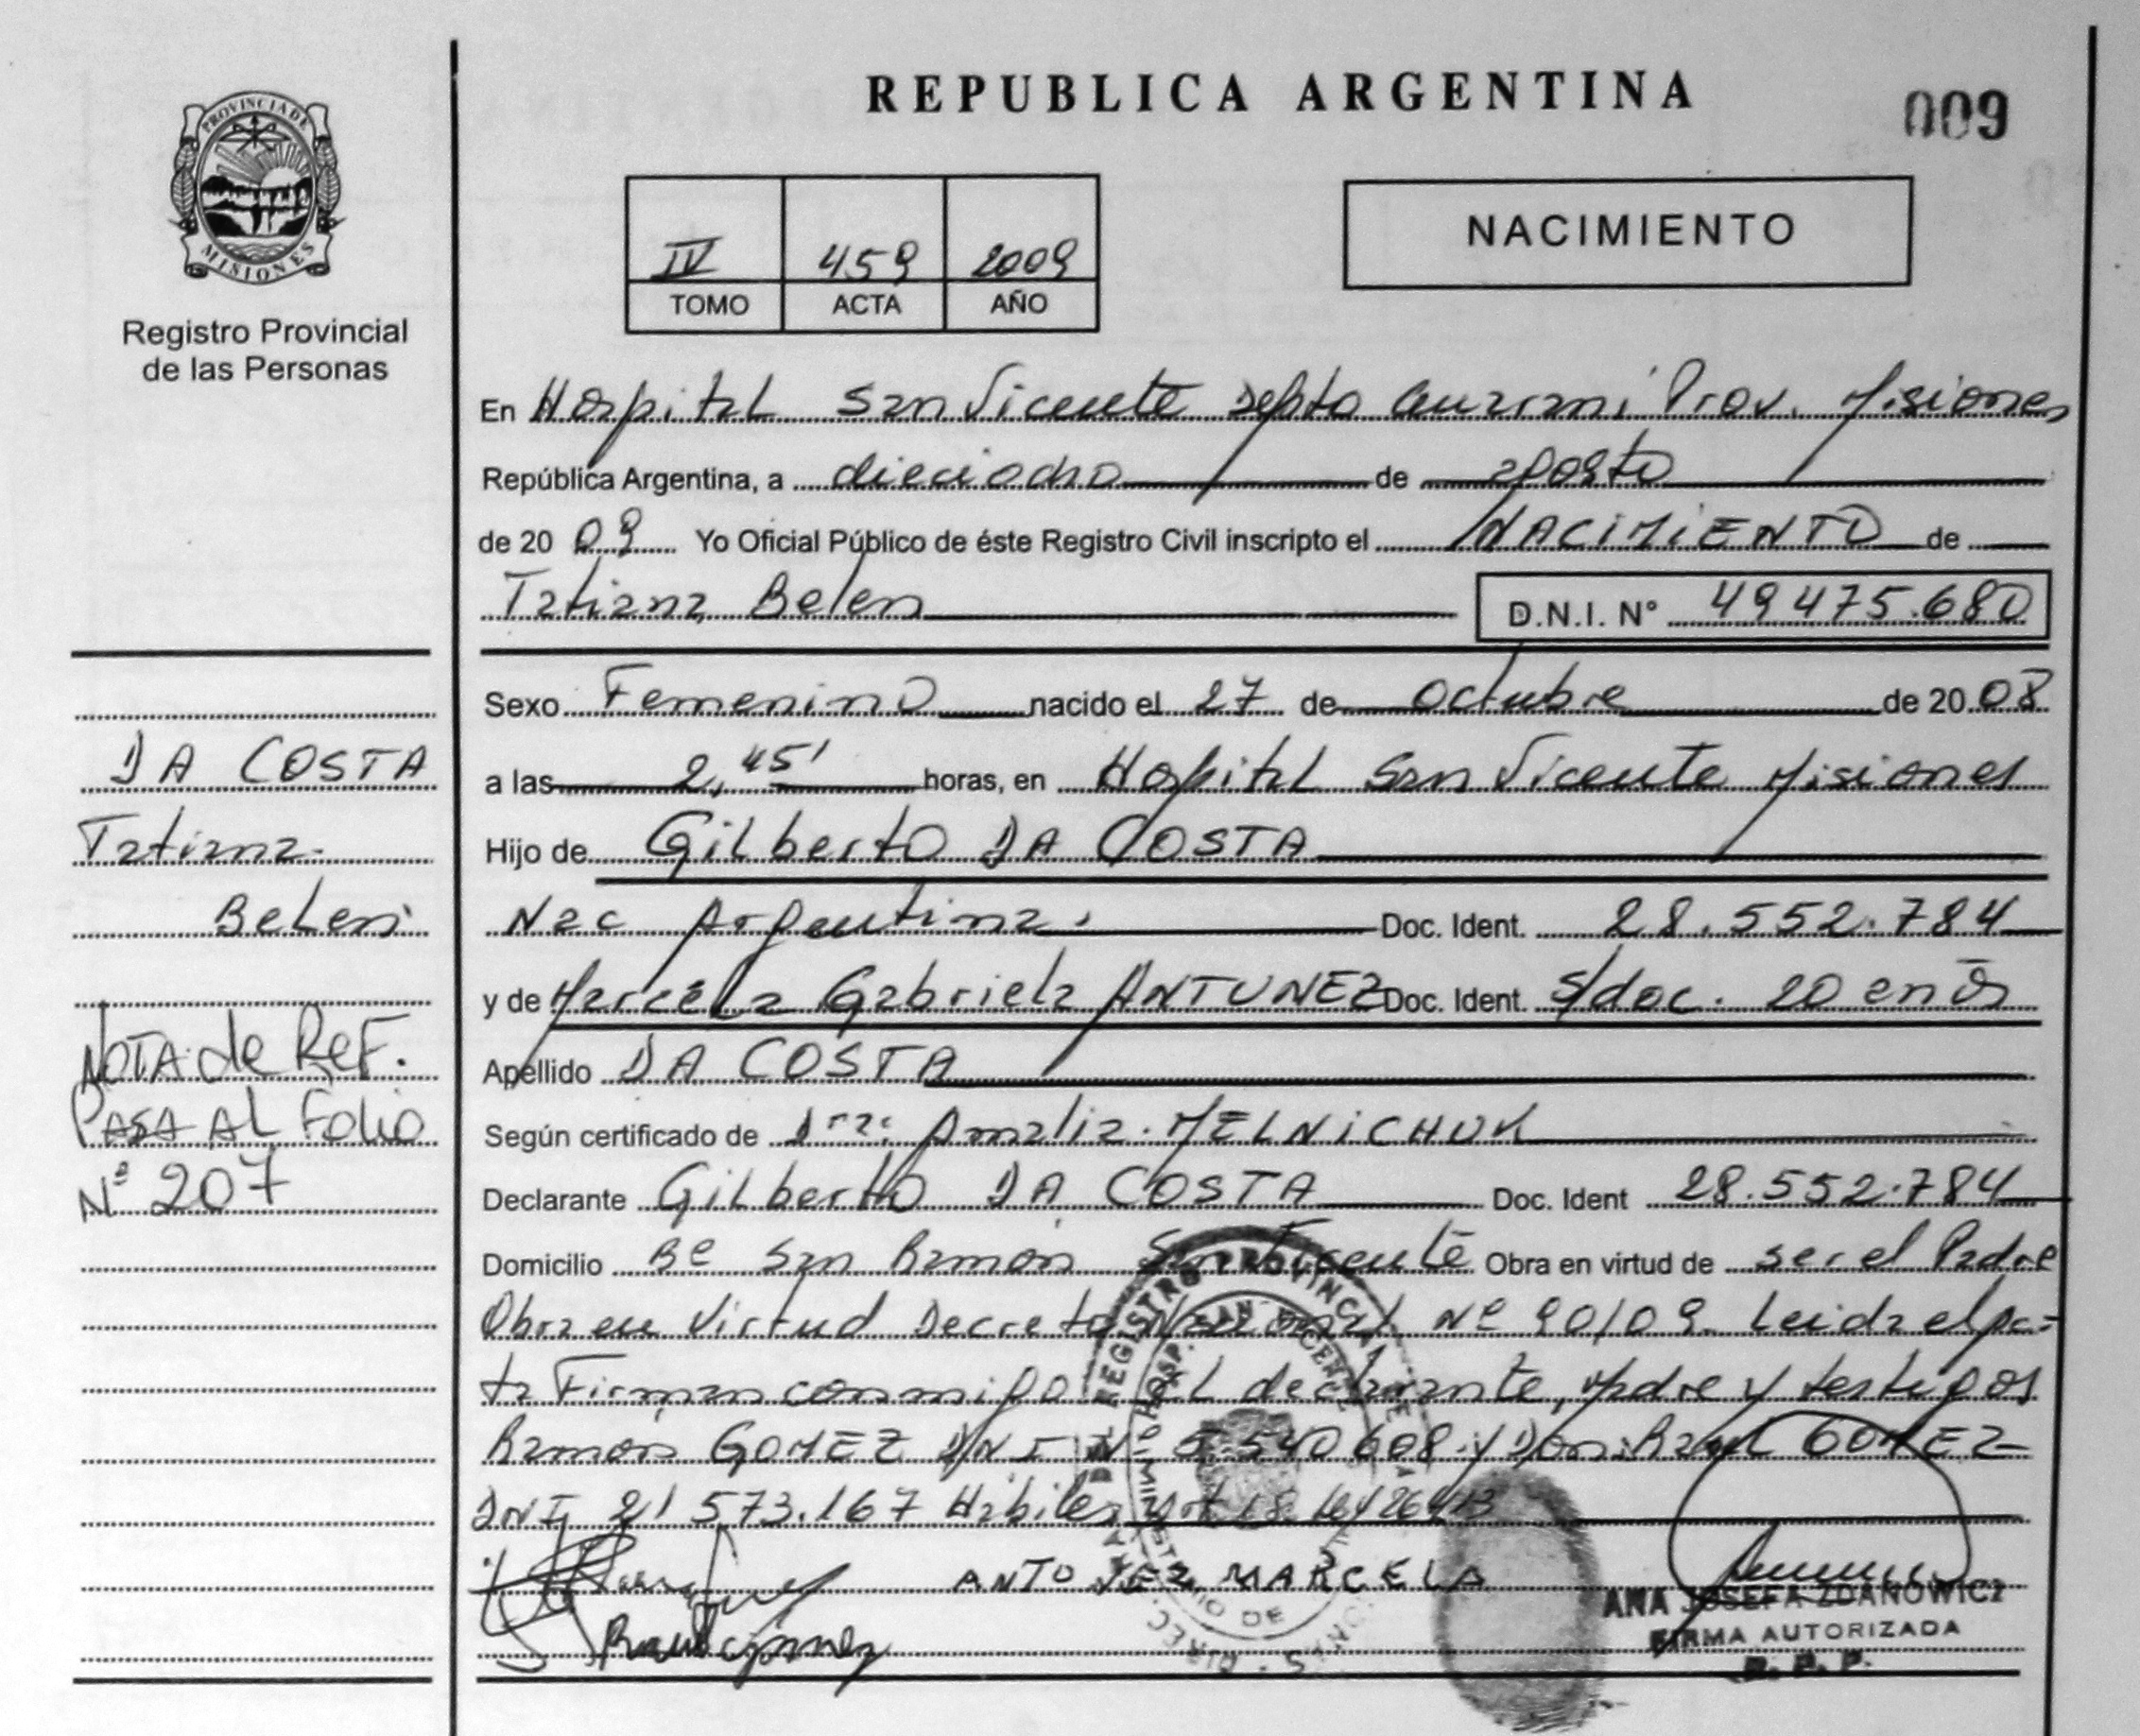 PROVINCIA DE
MISIONES
Registro Provincial
de las Personas
REPUBLICA ARGENTINA
009
IV 459 2009
TOMO ACTA AÑO
NACIMIENTO
En Hospital San Vicente Depto Guarani Prov. Misiones
República Argentina, a dieciocho de agosto
de 20 09 Yo Oficial Público de éste Registro Civil inscripto el NACIMIENTO de
Tatiana Belen D.N.I. N° 49475.680
Sexo Femenino nacido el 27 de octubre de 20 08
a las 2,45' horas, en Hospital San Vicente Misiones
Hijo de Gilberto DA COSTA
Nac Argentina. Doc. Ident. 28.552.784
y de Marcela Gabriela ANTUNEZ Doc. Ident. S/doc. 20
Apellido DA COSTA
Según certificado de Dra: Amalia MELNICHUK
Declarante Gilberto DA COSTA Doc. Ident 28.552.784
Domicilio Bº San Ramon San Vicente Obra en virtud de ser el Padre
Obra en Virtud Decreto Nacional Nº 90/09. Leida el pc=
ta Firman conmigo el declarante, Madre y testigos
Ramon GOMEZ DNI Nº 5.540608 y Don: Raul GOMEZ
DNI 21 573.167 Habiles
MARCELA
Raul Gomez
ANA JOSEFA ZDANOWICZ
FIRMA AUTORIZADA
R. P. P.
DA COSTA
Tatiana
Belen
NOTA de REF.
PASA AL Folio
Nº 207
REGISTRO PROVINCIAL
HOSP. SAN VICENTE